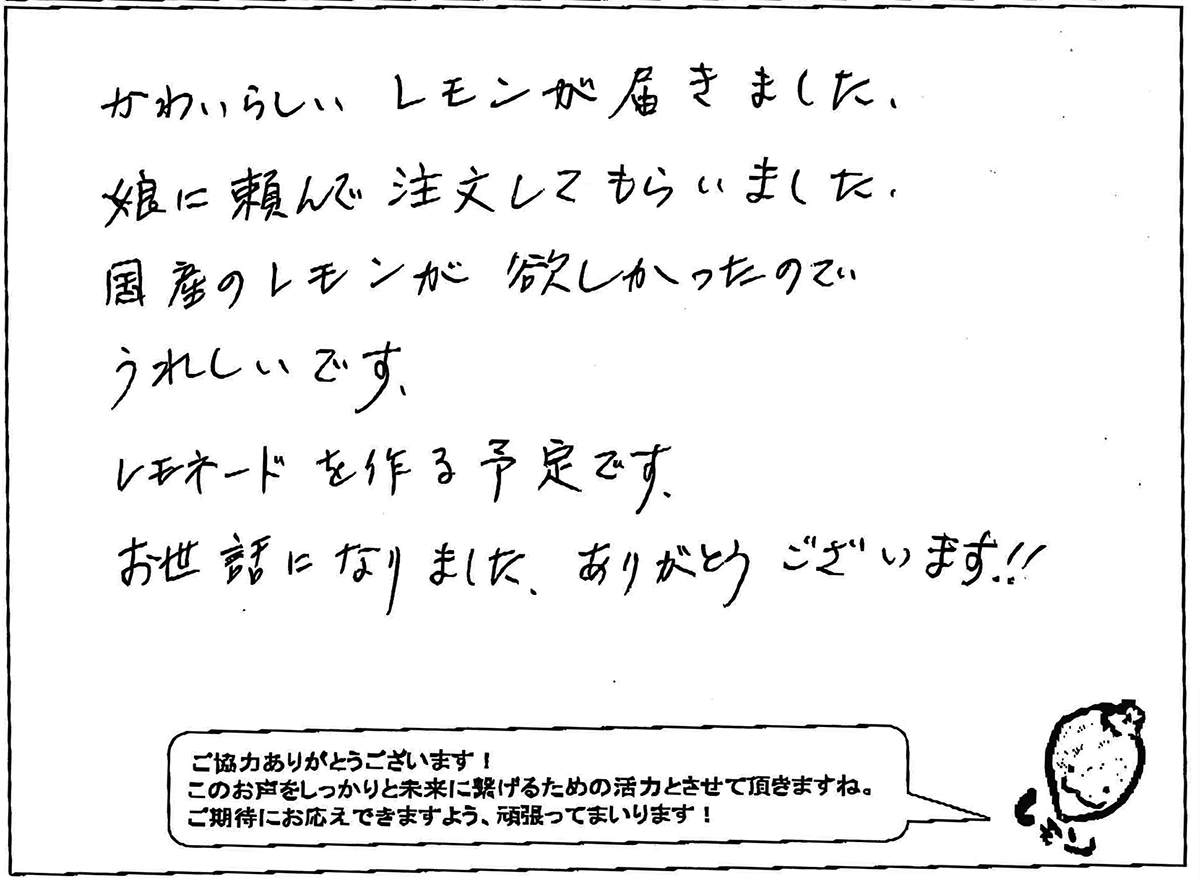 かわいらしい レモンが届きました、
娘に頼んで注文してもらいました、
国産のレモンが 欲しかったので
うれしいです、
レモネードを作る予定です、
お世話になりました、ありがとうございます!!
ご協力ありがとうございます！
このお声をしっかりと未来に繋げるための活力とさせて頂きますね。
ご期待にお応えできますよう、頑張ってまいります！